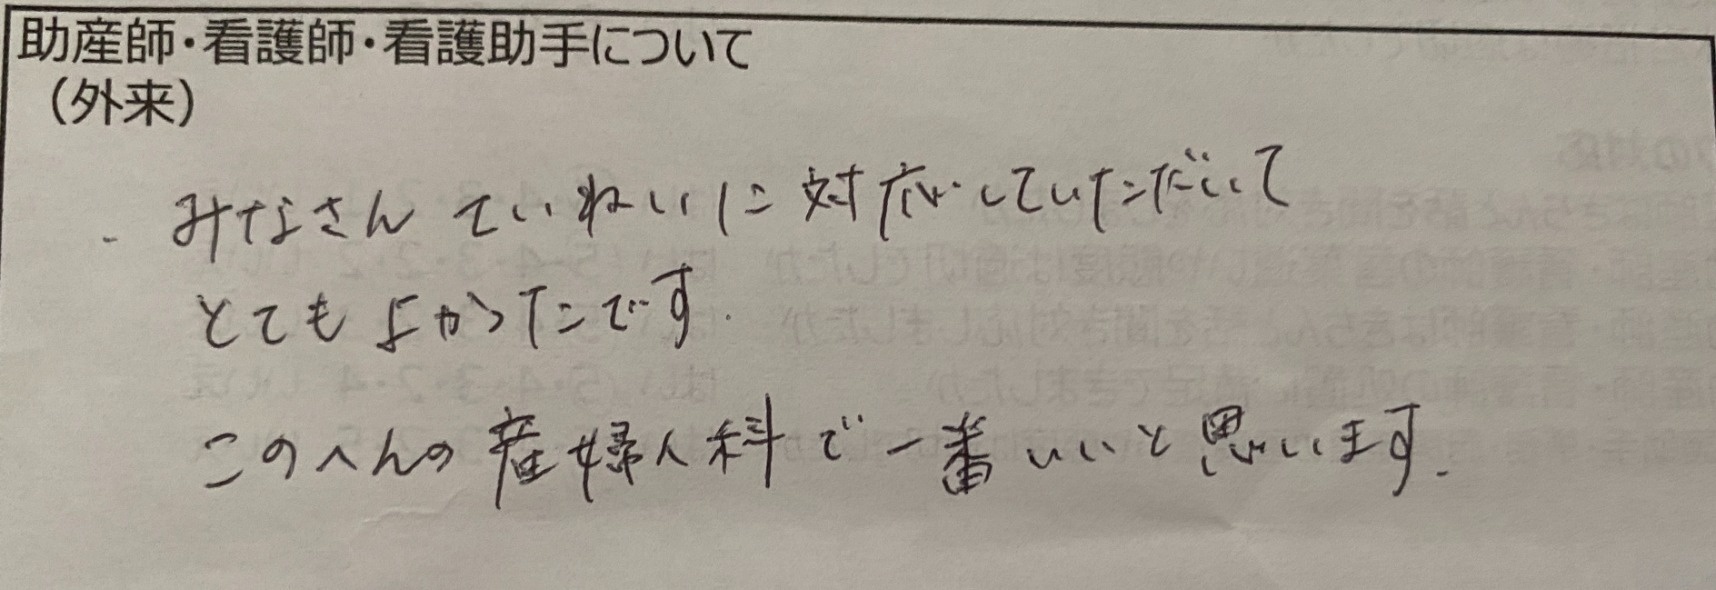 助産師・看護師・看護助手について
（外来）
・みなさんていねいに対応していただいて
とてもよかったです.
このへんの産婦人科で一番いいと思います.